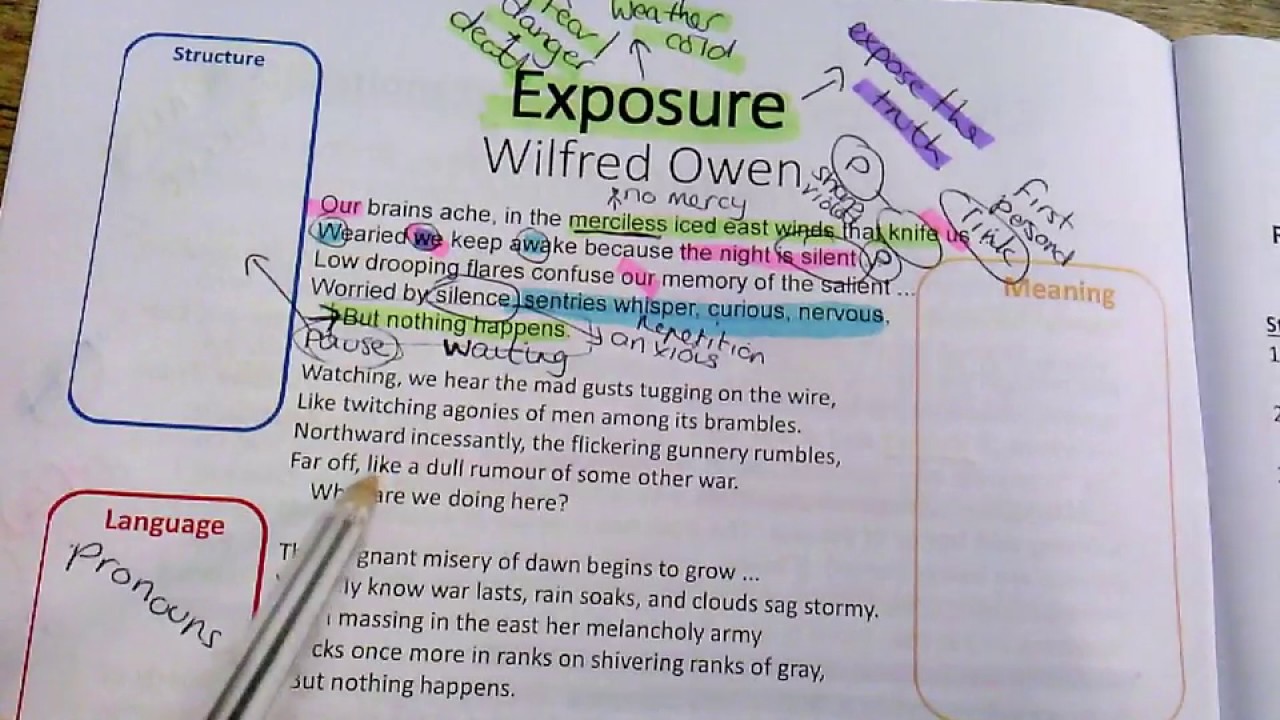 fear/
danger
death
weather
cold
expose the
truth
Structure
Exposure
Wilfred Owen
no mercy
P
first
person
link
Our brains ache, in the merciless iced east winds that knife us
Wearied we keep awake because the night is silent
P
Low drooping flares confuse our memory of the salient ...
Worried by silence, sentries whisper, curious, nervous,
But nothing happens.
Repetition
anxious
Pause
waiting
Meaning
Watching, we hear the mad gusts tugging on the wire,
Like twitching agonies of men among its brambles.
Northward incessantly, the flickering gunnery rumbles,
Far off, like a dull rumour of some other war.
are we doing here?
Language
Pronouns
misery of dawn begins to grow ...
know war lasts, rain soaks, and clouds sag stormy.
massing in the east her melancholy army
once more in ranks on shivering ranks of gray,
But nothing happens.
1
2